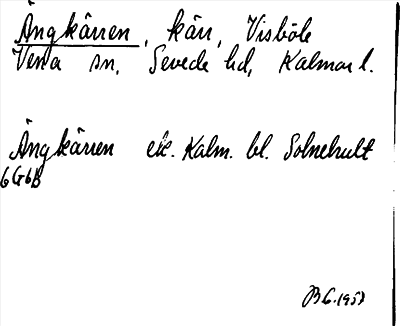 Ängkärren, kärr, Visböle
Vena sn, Sevede hd, Kalmar l.
Ängkärren ek. Kalm. bl. Solnehult
6G6b
BG. 1953